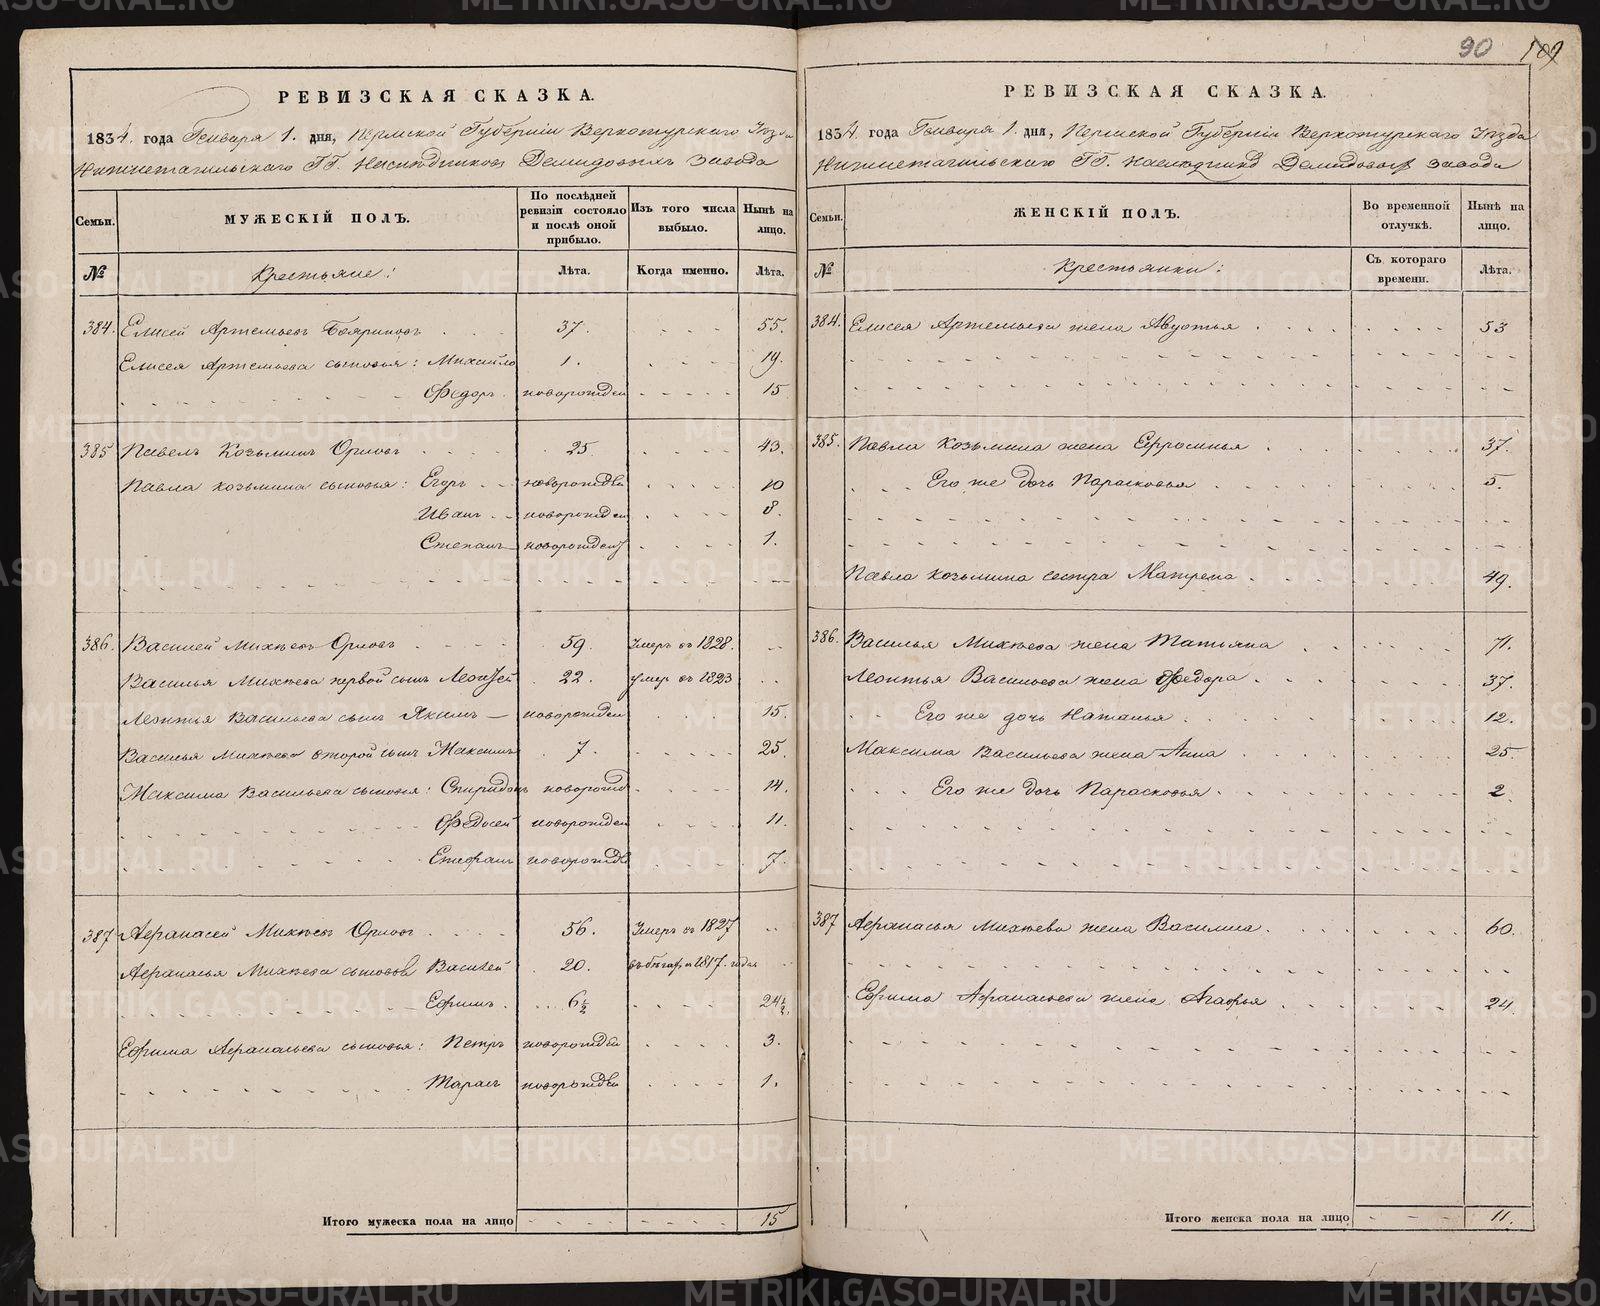 90 109
РЕВИЗСКАЯ СКАЗКА.
1834. года Генваря 1. дня, Пермской Губерніи Верхотурскаго Уѣзда
Нижнетагильскаго ГГ. Наслѣдниковъ Демидовыхъ завода
Семьи. МУЖЕСКІЙ ПОЛЪ. По послѣдней ревизіи состояло и послѣ оной прибыло. Изъ того числа выбыло. Нынѣ на лицо.
№ Крестьяне: Лѣта. Когда именно. Лѣта.
384. Елисей Артемьевъ Бояриновъ 37. 55.
Елисея Артемьева сыновья: Михайло 1. 19.
Федоръ новорожден 15
385 Павелъ Козьминъ Орловъ 25. 43.
Павла Козьмина сыновья: Егоръ новорожден 10
Иванъ новорожден 8.
Степанъ новорожден 1.
386. Василей Михѣевъ Орловъ 59. Умеръ въ 1828.
Василья Михѣева первой сынъ Леонтей 22. умер въ 1823
Леонтья Васильева сынъ Якимъ новорожден 15.
Василья Михѣева второй сынъ Максимъ 7. 25.
Максима Васильева сыновья: Спиридонъ новорожд 14.
Федосей новорожден 11.
Епифанъ новорожде 7.
387 Афанасей Михѣевъ Орловъ 56. Умеръ въ 1827
Афанасья Михѣева сыновья Василей 20. въ бѣгах с 1817. года
Ефимъ 6½ 24½.
Ефима Афанасьева сыновья: Петръ новорожден 3.
Тарасъ новорожден 1.
Итого мужеска пола на лицо 15
РЕВИЗСКАЯ СКАЗКА.
1834 года Генваря 1. дня, Пермской Губерніи Верхотурскаго Уѣзда
Нижнетагильскаго ГГ. Наслѣдниковъ Демидовыхъ завода
Семьи. ЖЕНСКІЙ ПОЛЪ. Во временной отлучкѣ. Нынѣ на лицо.
№ Крестьянки: Съ котораго времени. Лѣта.
384. Елисея Артемьева жена Авдотья 53
385. Павла Козьмина жена Ефросинья 37.
Его же дочь Парасковья 5.
Павла Козьмина сестра Матрена 49.
386. Василья Михѣева жена Татьяна 71.
Леонтья Васильева жена Федора 37.
Его же дочь Наталья 12.
Максима Васильева жена Анна 25
Его же дочь Парасковья 2
387 Афанасья Михѣева жена Василиса 60.
Ефима Афанасьева жена Агафья 24.
Итого женска пола на лицо 11.
METRIKI.GASO-URAL.RU